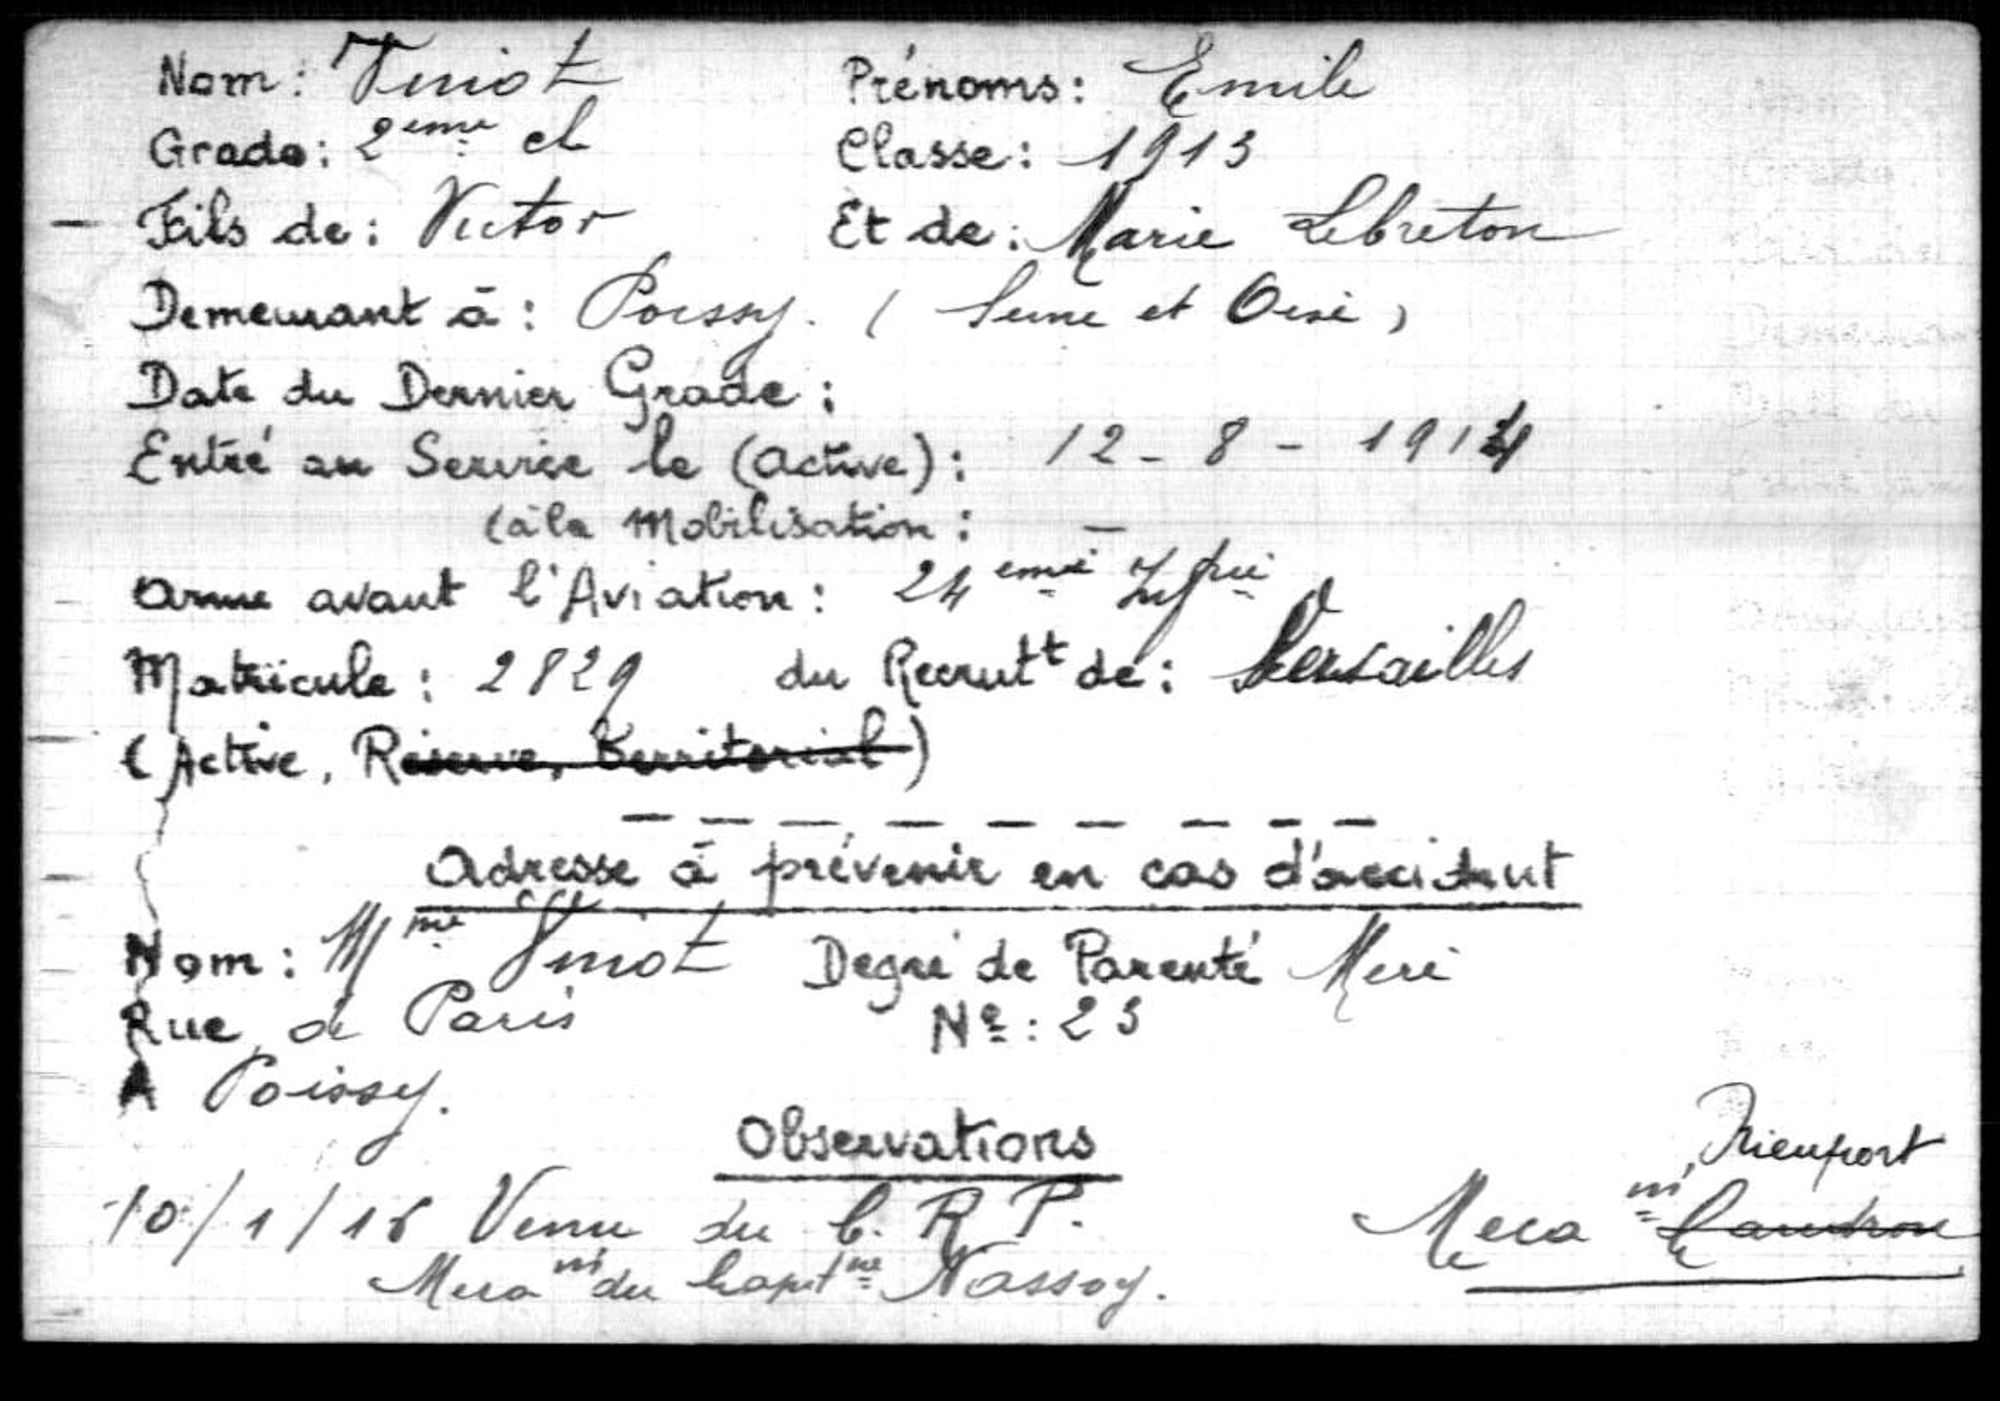 Nom: Viniot Prénoms: Emile
Grade: 2ème cl Classe: 1913
Fils de: Victor Et de: Marie Lebreton
Demeurant à: Poissy. (Seine et Oise)
Date du Dernier Grade:
Entré au Service le (active): 12-8-1914
(à la Mobilisation: —
Arme avant l'Aviation: 24 eme
Matricule: 2829 du Recrutt de: Versailles
(Active, Réserve, Territorial)
Adresse à prévenir en cas d'accident
Nom: Mme Viniot Degré de Parenté Mere
Rue de Paris No: 23
A Poissy.
Observations
10/1/16 Venu du C. R. P.
Meca ni du Capitne Nassoy.
Nieuport
Meca ni Caudron